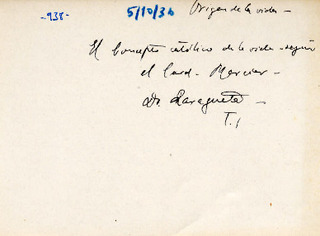 -938-
5/10/36
Origen de la vida -
El Concepto católico de la vida - según
el Card. Mercier -
Dr. Zaragüeta -
T. 1